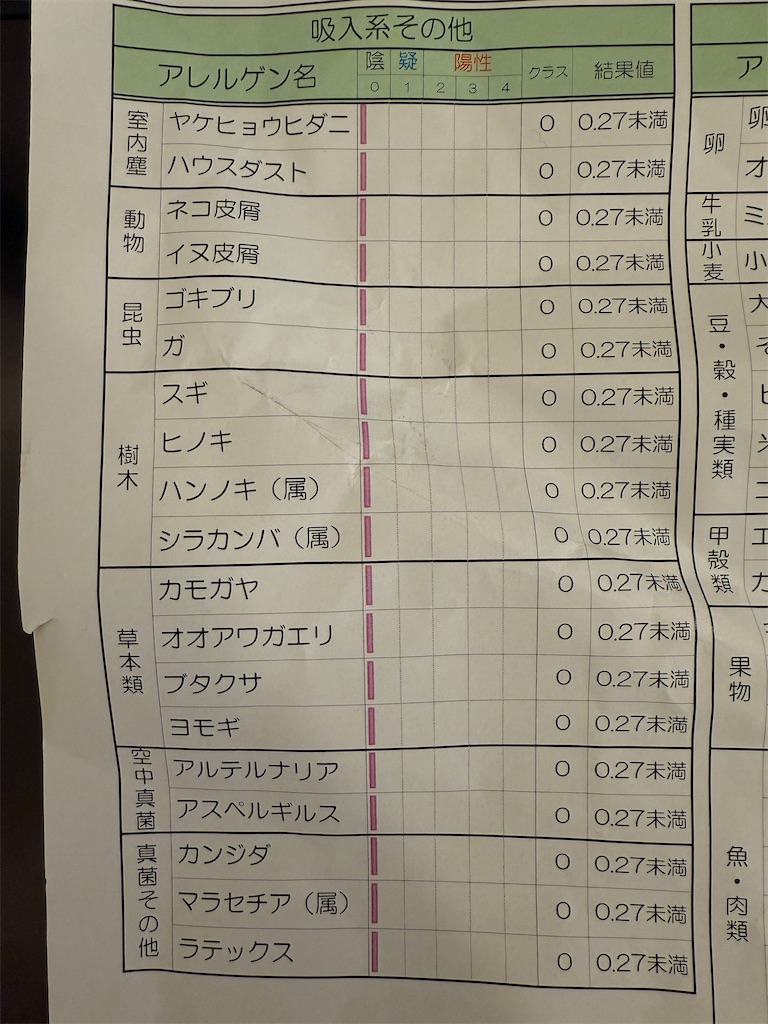 吸入系その他
アレルゲン名 陰 疑 陽性 クラス 結果値
0 1 2 3 4
室内塵 ヤケヒョウヒダニ 0 0.27未満
ハウスダスト 0 0.27未満
動物 ネコ皮屑 0 0.27未満
イヌ皮屑 0 0.27未満
昆虫 ゴキブリ 0 0.27未満
ガ 0 0.27未満
樹木 スギ 0 0.27未満
ヒノキ 0 0.27未満
ハンノキ（属） 0 0.27未満
シラカンバ（属） 0 0.27未満
草本類 カモガヤ 0 0.27未満
オオアワガエリ 0 0.27未満
ブタクサ 0 0.27未満
ヨモギ 0 0.27未満
空中真菌 アルテルナリア 0 0.27未満
アスペルギルス 0 0.27未満
真菌その他 カンジダ 0 0.27未満
マラセチア（属） 0 0.27未満
ラテックス 0 0.27未満
ア
卵 卵
オ
牛乳 ミ
小麦 小
豆・穀・種実類 大
そ
ヒ
米
ゴ
甲殻類 エ
カ
果物
魚・肉類